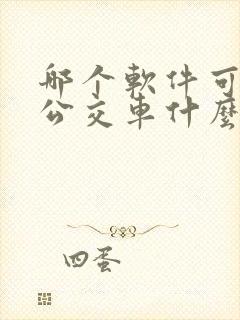 那个軟件可
公交車什麼
四蛋